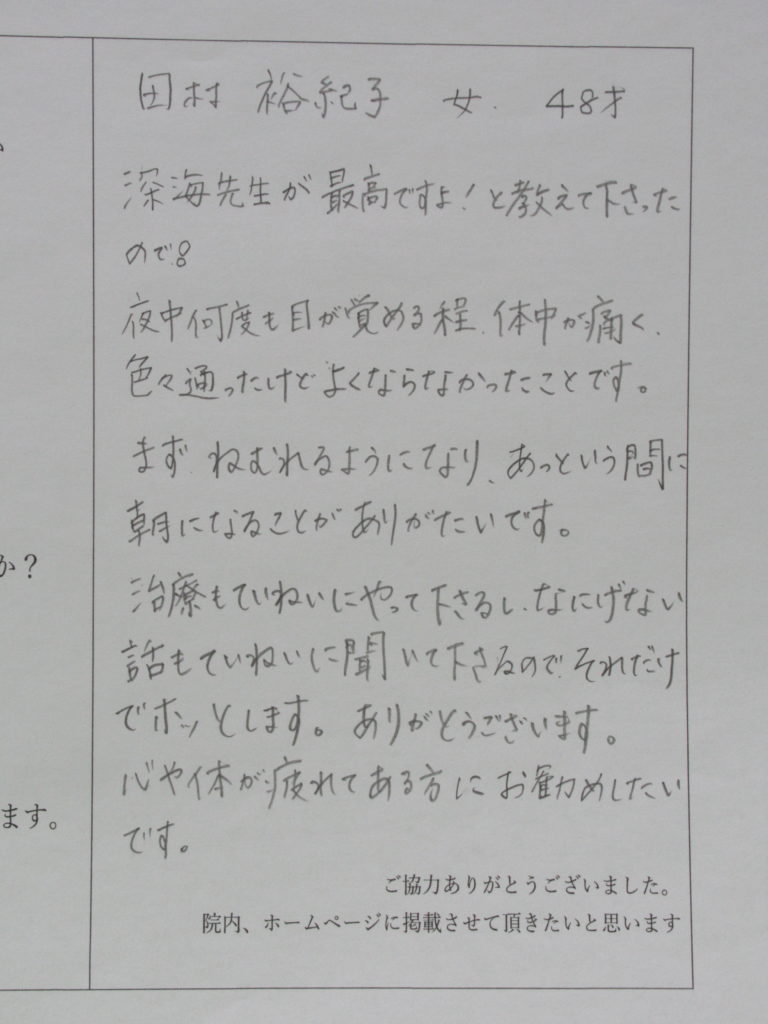 田村 裕紀子 女. 48才
深海先生が最高ですよ!と教えて下さった
ので。
夜中何度も目が覚める程、体中が痛く、
色々通ったけどよくならなかったことです。
まず ねむれるようになり、あっという間に
朝になることがありがたいです。
か?
治療もていねいにやって下さるし、なにげない
話もていねいに聞いて下さるので、それだけ
でホッとします。ありがとうございます。
心や体が疲れてある方に お勧めしたい
ます。
です。
ご協力ありがとうございました。
院内、ホームページに掲載させて頂きたいと思います